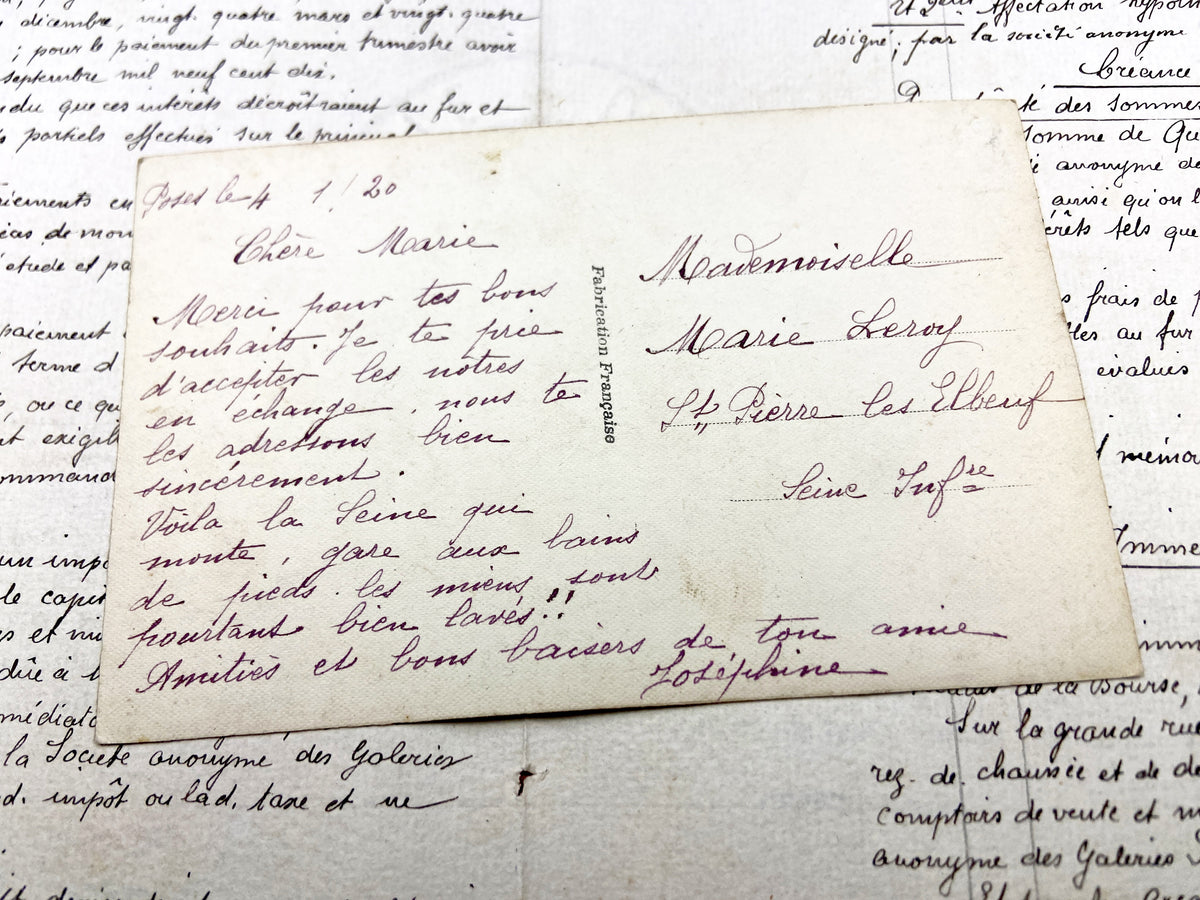 décembre, vingt-quatre mars et vingt-quatre
; pour le paiement du premier trimestre avoir
septembre mil neuf cent dix.
du que ces intérêts décroîtraient au fur et
partiels effectués sur le principal
en
de mon
étude et pa
paiement
terme d
, ou ce qu
exigib
ommand
un impô
le capit
et mi
dûe à l
médiat
la Société anonyme des Galeries
d. impôt ou lad. taxe et ne
Affectation hypoth
désigné, par la société anonyme
Créance
té des sommes
somme de Qu
anonyme de
ainsi qu'on l
érêts tels que
frais de p
les au fur
évalués
mémo
Imme
de la Bourse,
Sur la grande rue
rez-de-chaussée et de de
comptoirs de vente et m
anonyme des Galeries
Poses le 4 1/20
Chère Marie
Merci pour tes bons
souhaits. Je te prie
d'accepter les notres
en échange, nous te
les adressons bien
sincérement.
Voila la Seine qui
monte, gare aux bains
de pieds. les miens sont
pourtant bien lavés!!
Amitiés et bons baisers de ton amie
Joséphine
Fabrication Française
Mademoiselle
Marie Leroy
St Pierre les Elbeuf
Seine Infre